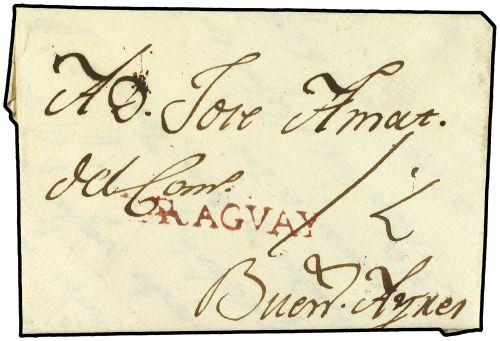 A D. Jose Amat.
del Com.º
PARAGVAY 1/2
Buen.s Ayres